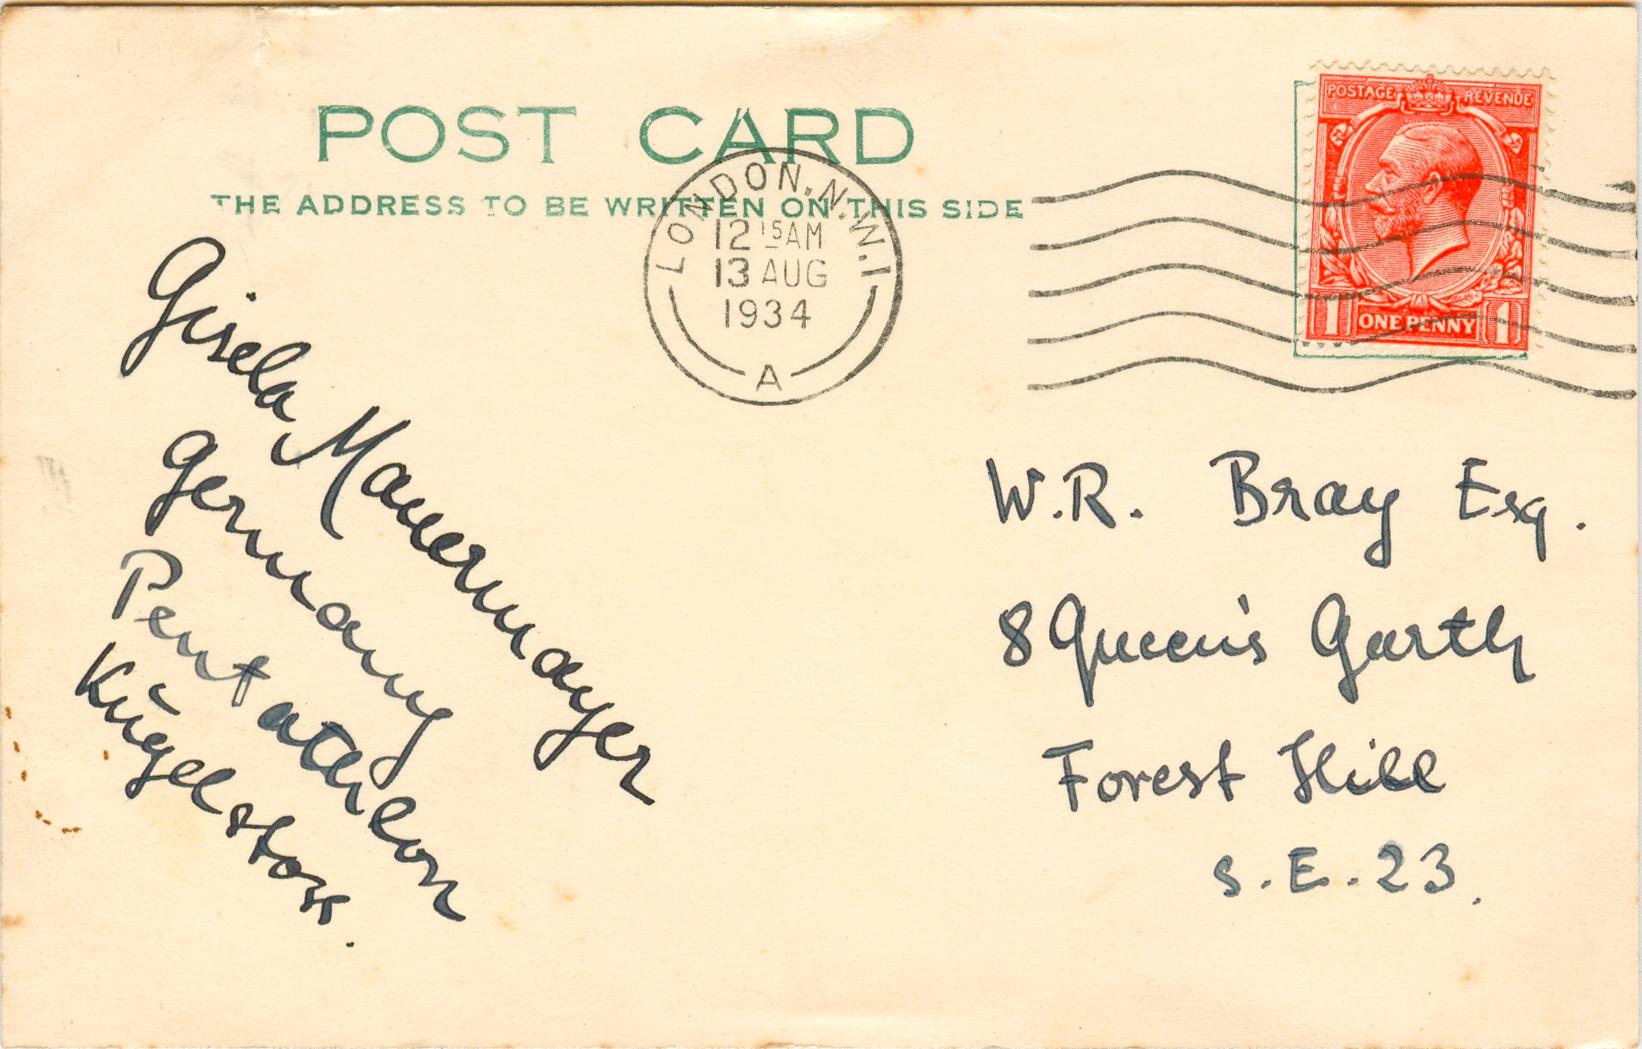 POST CARD
THE ADDRESS TO BE WRITTEN ON THIS SIDE
LONDON. N.W.1
12 15 AM
13 AUG
1934
A
POSTAGE REVENUE
1 ONE PENNY 1
Gisela Mauermayer
Germany
Pentathlon
Kugelstoss.
W.R. Bray Esq.
8 Queen's Garth
Forest Hill
S.E.23.